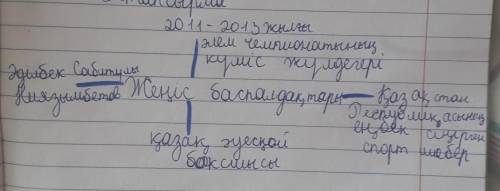 2011-2013 жылғы
әлем чемпионатының
күміс жүлдегері
Әділбек Сабитұлы
Ниязымбетов
Жеңіс баспалдақтары
Қазақстан
Республикасының
еңбек сіңірген
спорт шебер
қазақ әуесқой
боксшысы